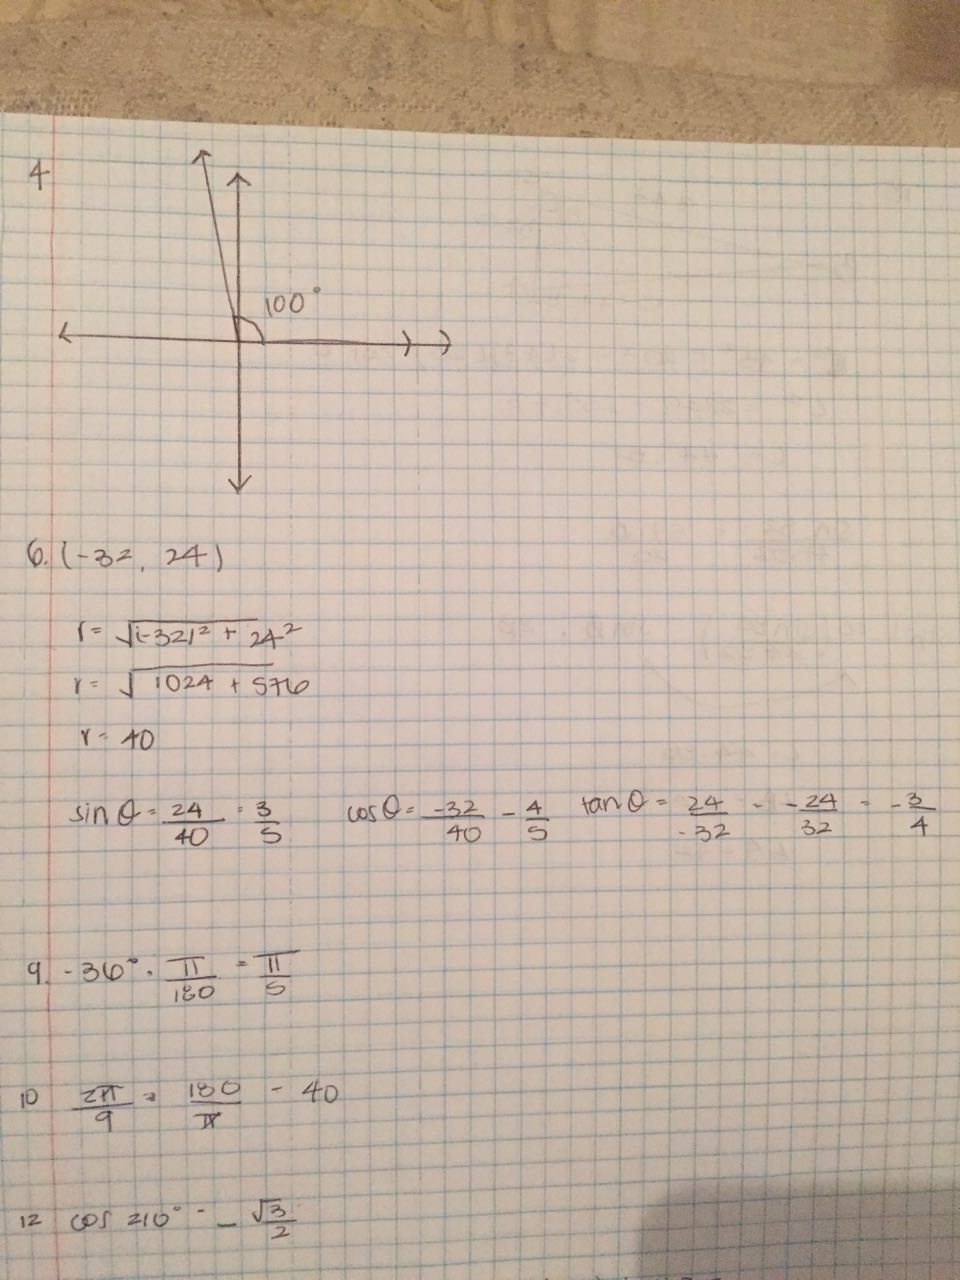 4
100°
6. (-32, 24)
r = √(-32)² + 24²
r = √1024 + 576
r = 40
sin θ = 24/40 = 3/5 cos θ = -32/40 - 4/5 tan θ = 24/-32 = -24/32 = -3/4
9. -36° · π/180 = π/5
10 2π/9 · 180/π = 40
12 cos 210° = -√3/2